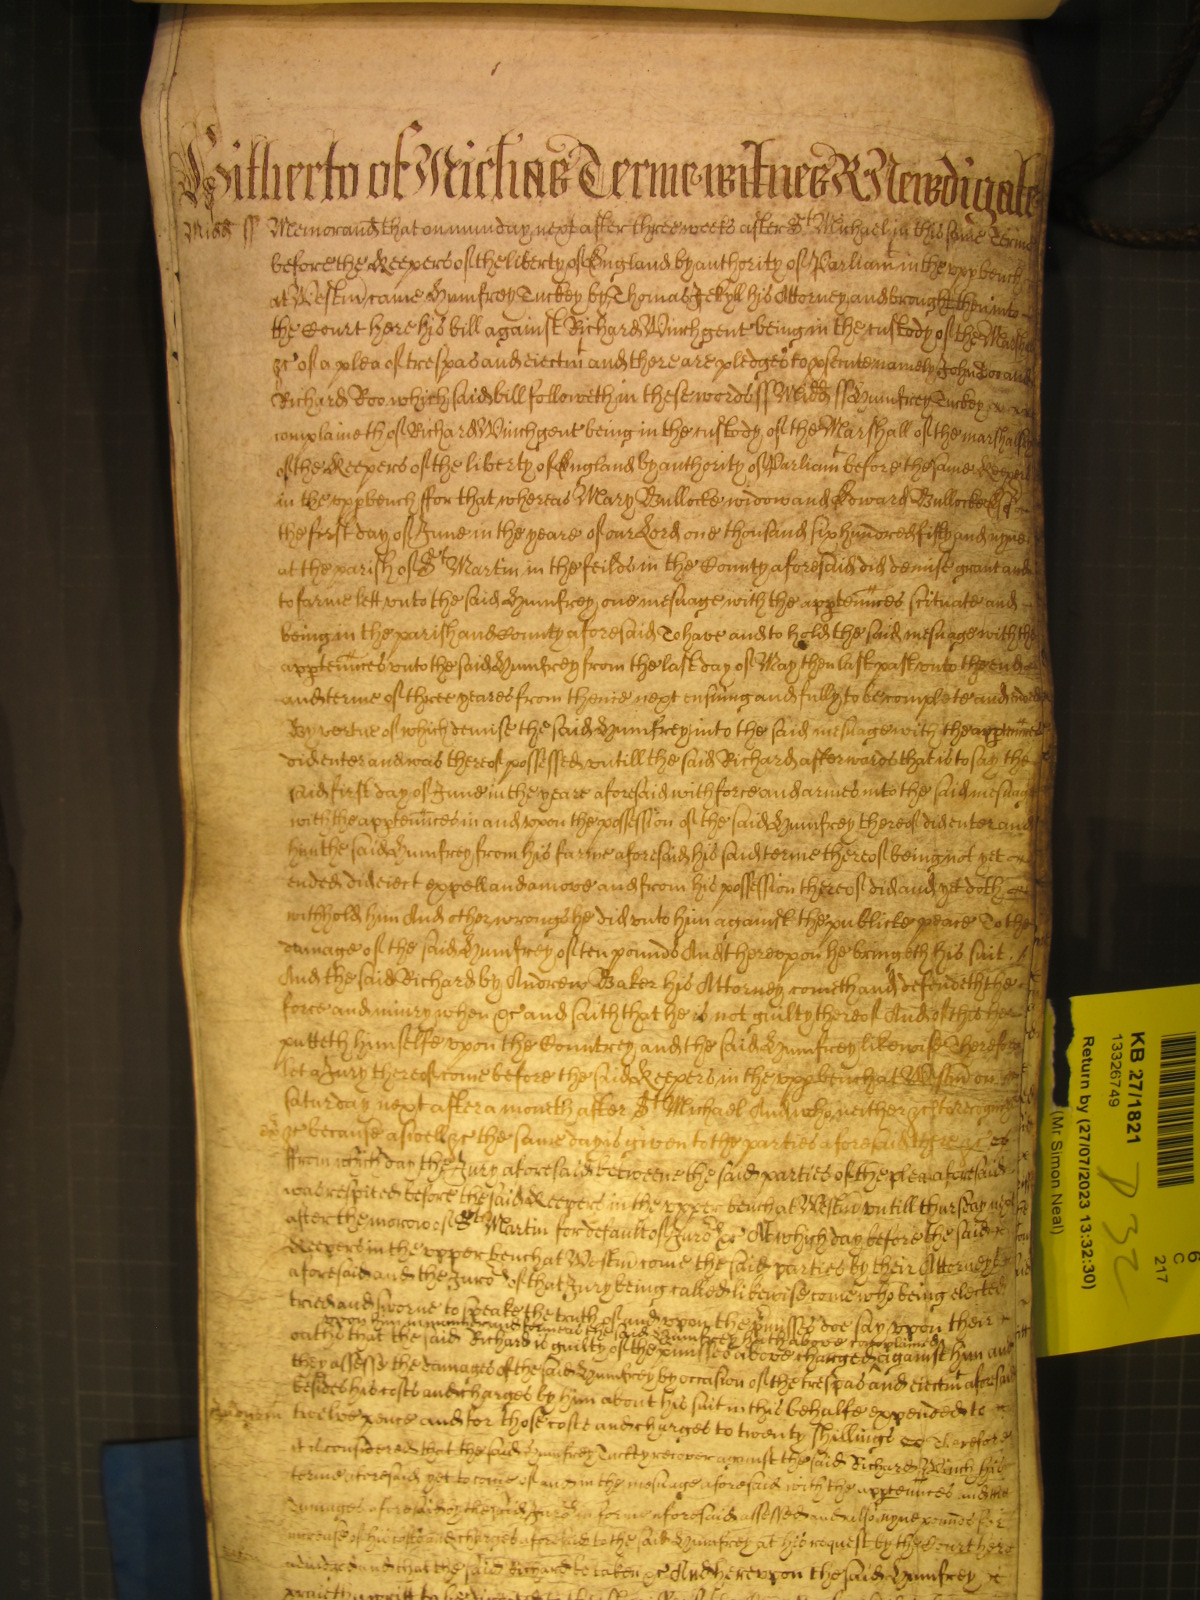 Hitherto of Michas Terme witnes R Newdigate
Midd ss Memorand that on munday next after three weeks after St Michael in this same Terme
before the Keepers of the liberty of England by authority of Parliamt in the vpp bench
at Westm came Humfrey Tuckey by Thomas Jekyll his Attorney and brought here into
the Court here his bill against Richard Winch gent being in the custody of the Marshall
&c of a plea of trespas and eiectmt and there are pledges to prosecute namely John Doo and
Richard Roo which said bill followeth in these words ss Midd ss Humfrey Tuckey
complaineth of Richard Winch gent being in the custody of the Marshall of the marshalsey
of the Keepers of the liberty of England by authority of Parliamt before the same Keepers
in the vpp bench ffor that whereas Mary Bullocke widow and Edward Bullocke Esqr
the first day of June in the yeare of our Lord one thousand six hundred fifty and nyne
at the parish of St Martin in the feilds in the County aforesaid did demise grant and
to farme lett vnto the said Humfrey one mesuage with the apptennces scituate and
being in the parish and County aforesaid To have and to hold the said mesuage with the
apptennces vnto the said Humfrey from the last day of May then last past vnto the end
and terme of three yeares from thence next ensuing and fully to be complete and ended
By vertue of which demise the said Humfrey into the said mesuage with the apptennces
did enter and was thereof possessed vntill the said Richard afterwards that is to say the
said first day of June in the yeare aforesaid with force and armes into the said mesuage
with the apptennces in and vpon the possession of the said Humfrey thereof did enter and
him the said Humfrey from his farme aforesaid his said terme thereof being not yet
ended did eiect expell and amove and from his possession thereof did and yet doth
withhold him And other wrongs he did vnto him against the publicke peace To the
damage of the said Humfrey of ten pounds And therevpon he bringeth his suit
And the said Richard by Andrew Baker his Attorney cometh and defendeth the
force and iniury when &c and saith that he is not guilty thereof And of this he
putteth himselfe vpon the Countrey and the said Humfrey likewise Therefore
let a Jury thereof come before the said Keepers in the vpp bench at Westm on
Saturday next after a month after St Michael And who neither &c to recognize
&c because aswell &c the same day is given to the parties aforesaid there &c
ffrom which day the Jury aforesaid betweene the said parties of the plea aforesaid
was respited before the said Keepers in the vpper bench at Westm vntill thursday next
after the morow of St Martin for default of Juro &c At which day before the said
Keepers in the vpper bench at Westm come the said parties by their Attorneys
aforesaid and the Juro of that Jury being called likewise come who being elected
tried and sworne to speake the truth of and vpon the pmisses doe say vpon their
vpon him in manner and forme as the said Humfrey hath above complained
oathe that the said Richard is guilty of the pmisses above charged against him and
they assesse the damages of the said Humfrey by occasion of the trespas and eiectmt aforesaid
besides his costs and charges by him about his suit in this behalfe expended to
twelve pence and for those costs and charges to twenty shillings Therefore
it is considered that the said Humfrey Tuckey recover against the said Richard Winch his
terme aforesaid yet to come of and in the mesuage aforesaid with the apptennces and the
damages aforesaid by the said Juro in forme aforesaid assessed and also nyne pounds for
increase of his costs and charges aforesaid to the said Humfrey at his request by the Court here
adiudged and that the said Richard be taken &c And herevpon the said Humfrey
prayeth a writt to be directed
KB 27/1821
13326749
Return by (27/07/2023 13:32:30)
(Mr Simon Neal)
6
C
217